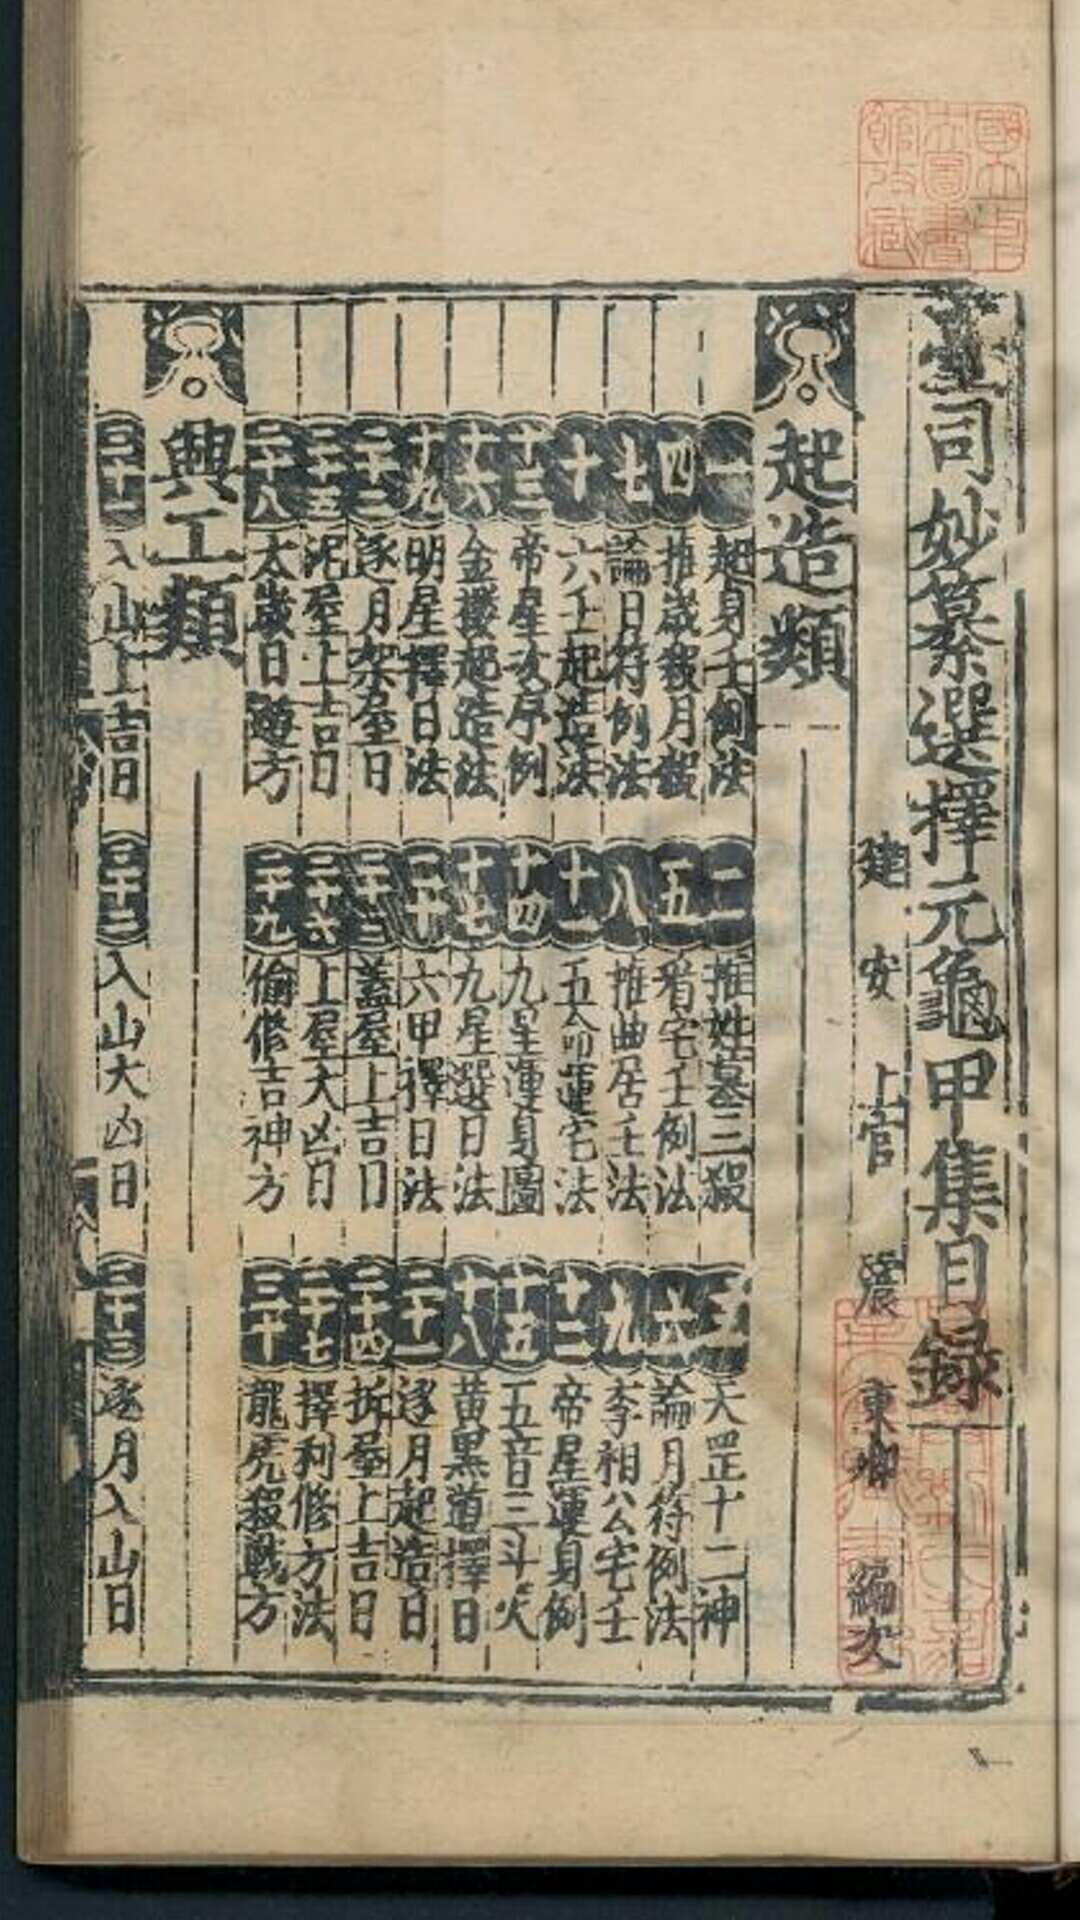 臺司妙纂選擇元龜甲集目錄
建安上官震東卿編次
起造類
一 起身壬例法 二 推姓墓三殺 三 天罡十二神
四 推歲殺月殺 五 看宅壬例法 六 論月符例法
七 論日符例法 八 推曲居壬法 九 李相公宅壬
十 六壬起造法 十一 五命運宅法 十二 帝星運身例
十三 帝星次序例 十四 九星運身圖 十五 五音三斗火
十六 金樓起造法 十七 九星選日法 十八 黃黑道擇日
十九 明星擇日法 二十 六甲擇日法 二十一 逐月起造日
二十二 逐月架屋日 二十三 蓋屋上吉日 二十四 拆屋上吉日
二十五 泥屋上吉日 二十六 上屋大凶日 二十七 擇利修方法
二十八 太歲日遊方 二十九 偷修吉神方 三十 龍虎殺戰方
興工類
三十一 入山上吉日 三十二 入山大凶日 三十三 逐月入山日